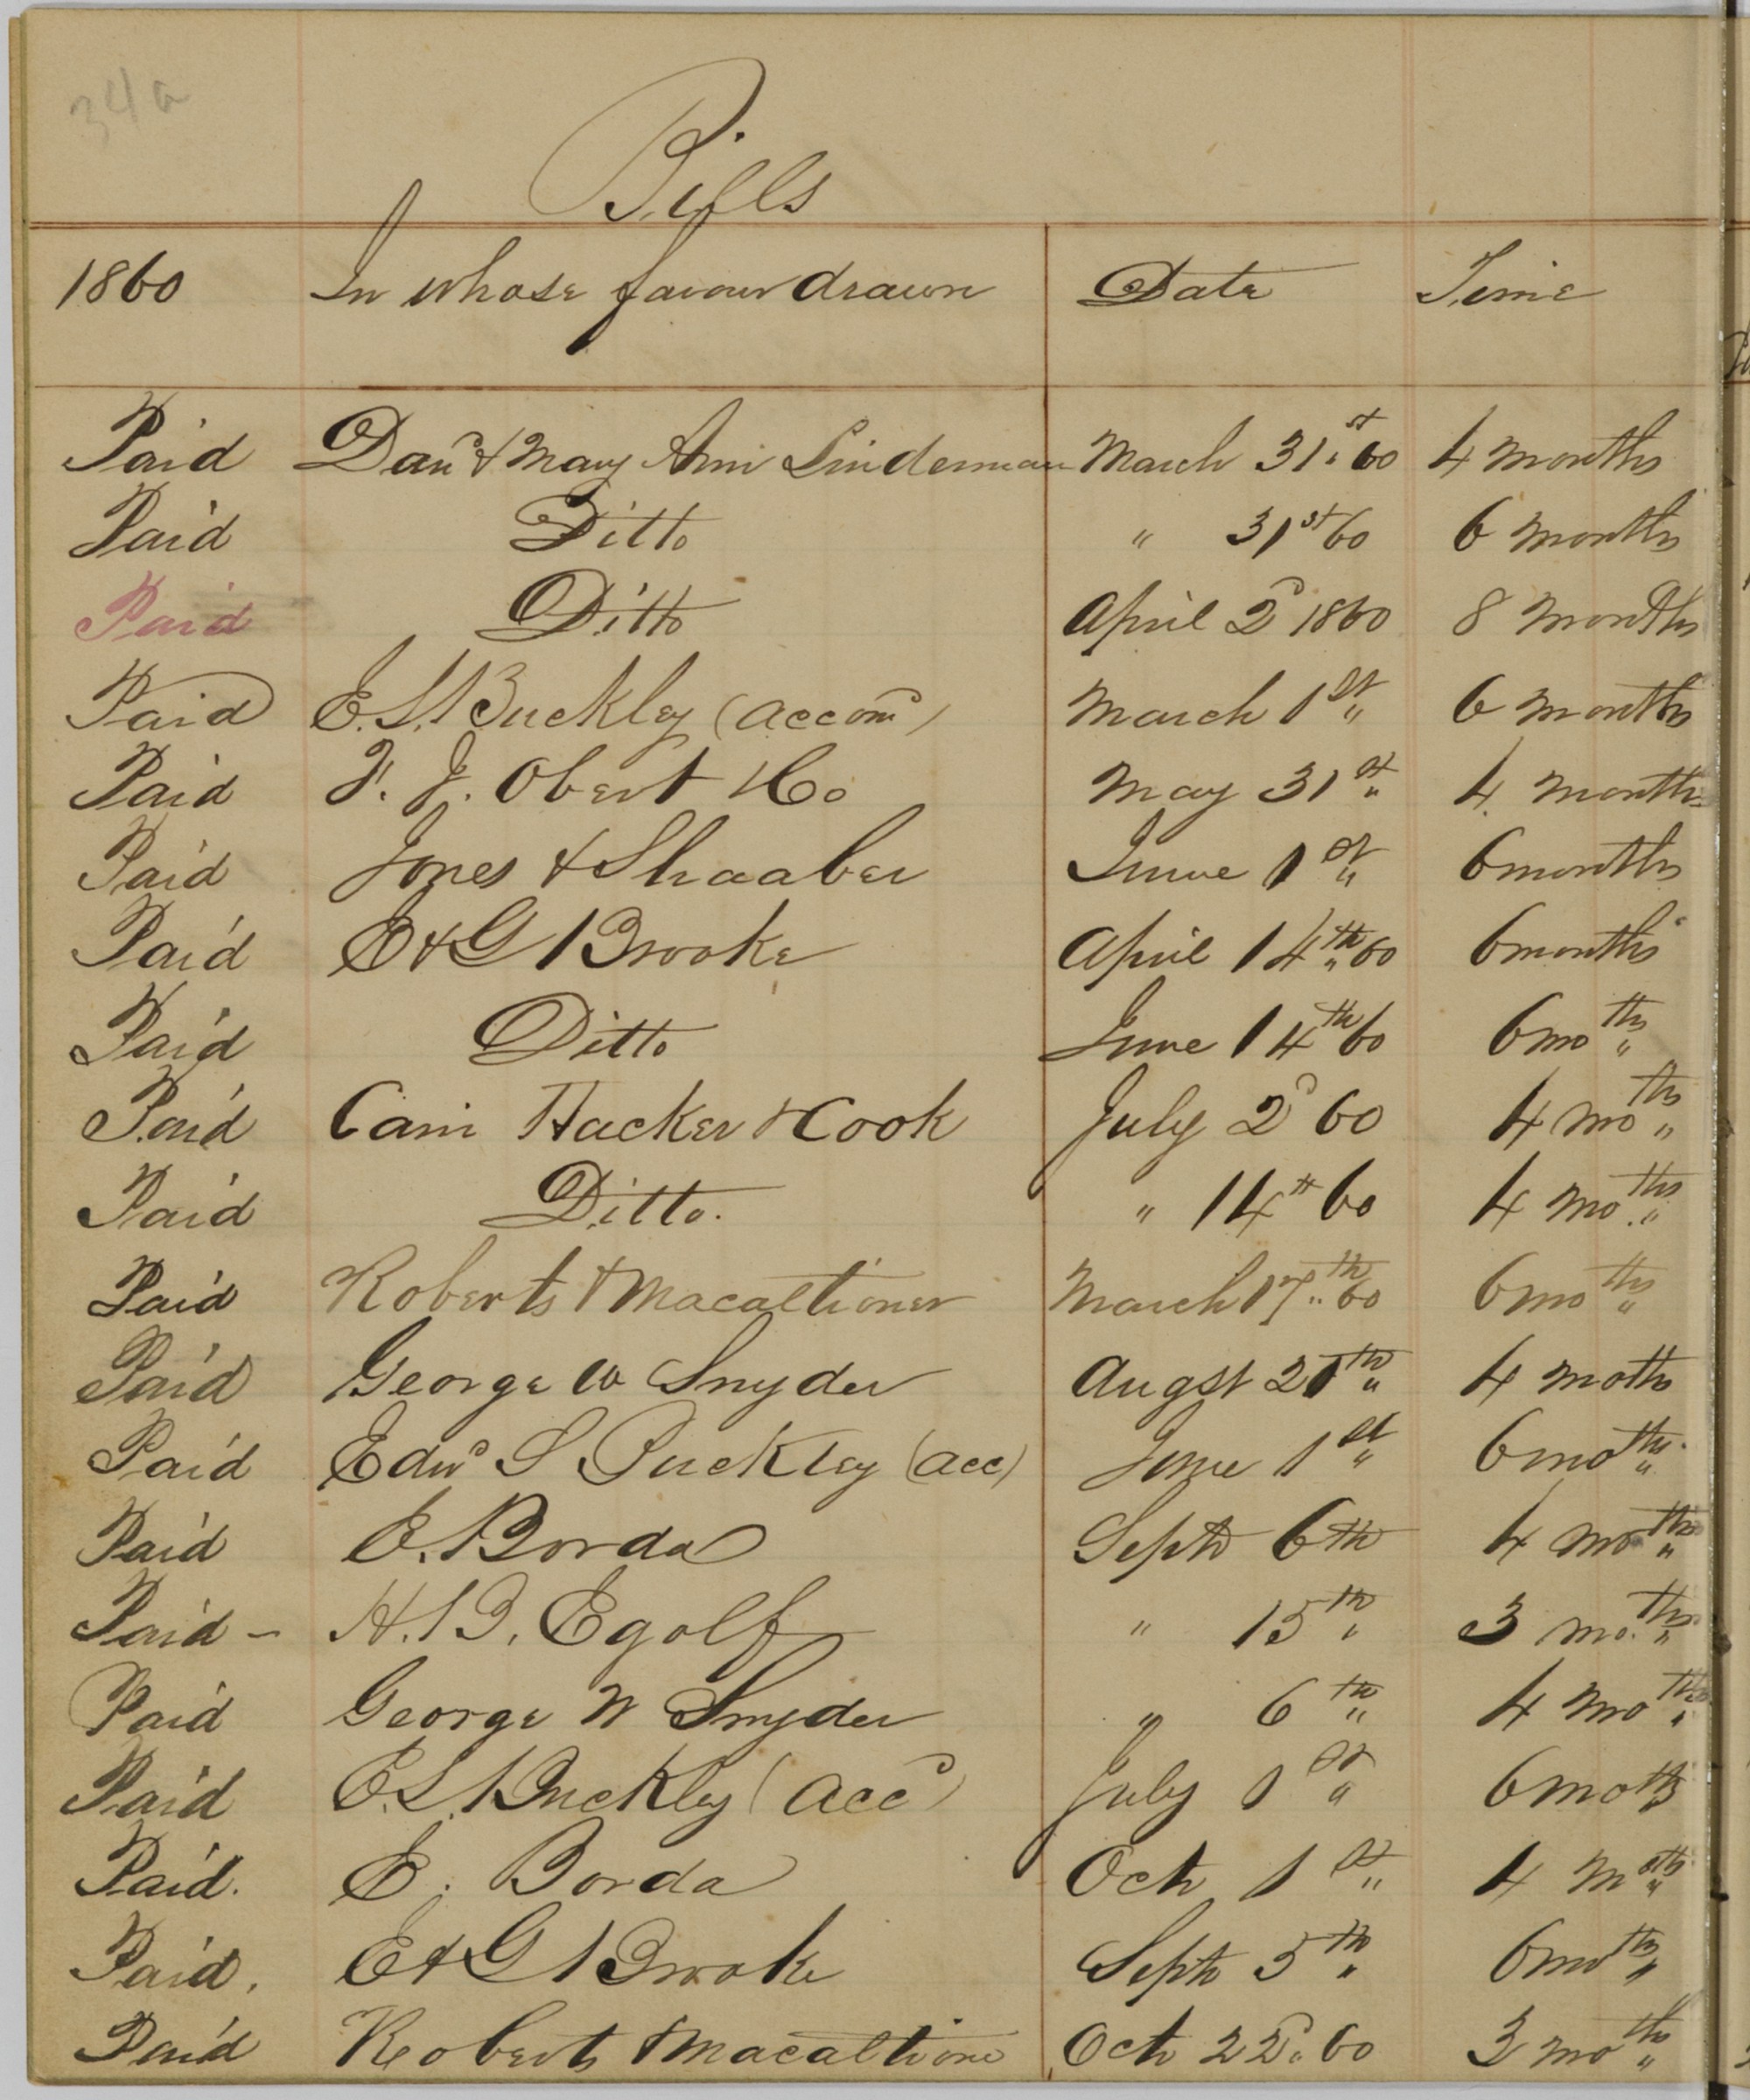 34a
Bills
1860 In whose favour drawn Date Time
Paid Danl & Mary Ann Linderman March 31st 60 4 months
Paid Ditto " 31st 60 6 months
Paid Ditto April 2d 1860 8 months
Paid E. S. Buckley (accomd) March 1st " 6 months
Paid F. J. Obert & Co May 31st " 4 months
Paid Jones & Shaaber June 1st " 6 months
Paid E & G Brooke April 14th " 60 6 months
Paid Ditto June 14th 60 6 moths "
Paid Cain Hacker & Cook July 2d 60 4 moths "
Paid Ditto. " 14th 60 4 moths "
Paid Roberts & Macaltioner March 17th " 60 6 moths "
Paid George W Snyder Augst 21th " 4 moths
Paid Edwd S Buckley (acc) June 1st " 6 moths "
Paid E. Borda Septr 6th 4 moths "
Paid – H. B. Egolf " 15th " 3 moths "
Paid George W Snyder " 6th " 4 moths "
Paid E. S. Buckley (accd) July 1st " 6 moths
Paid. E. Borda Oct 1st " 4 moths "
Paid. E & G Brooke Septr 5th " 6 moths "
Paid Roberts & Macaltione Oct 22d " 60 3 moths "